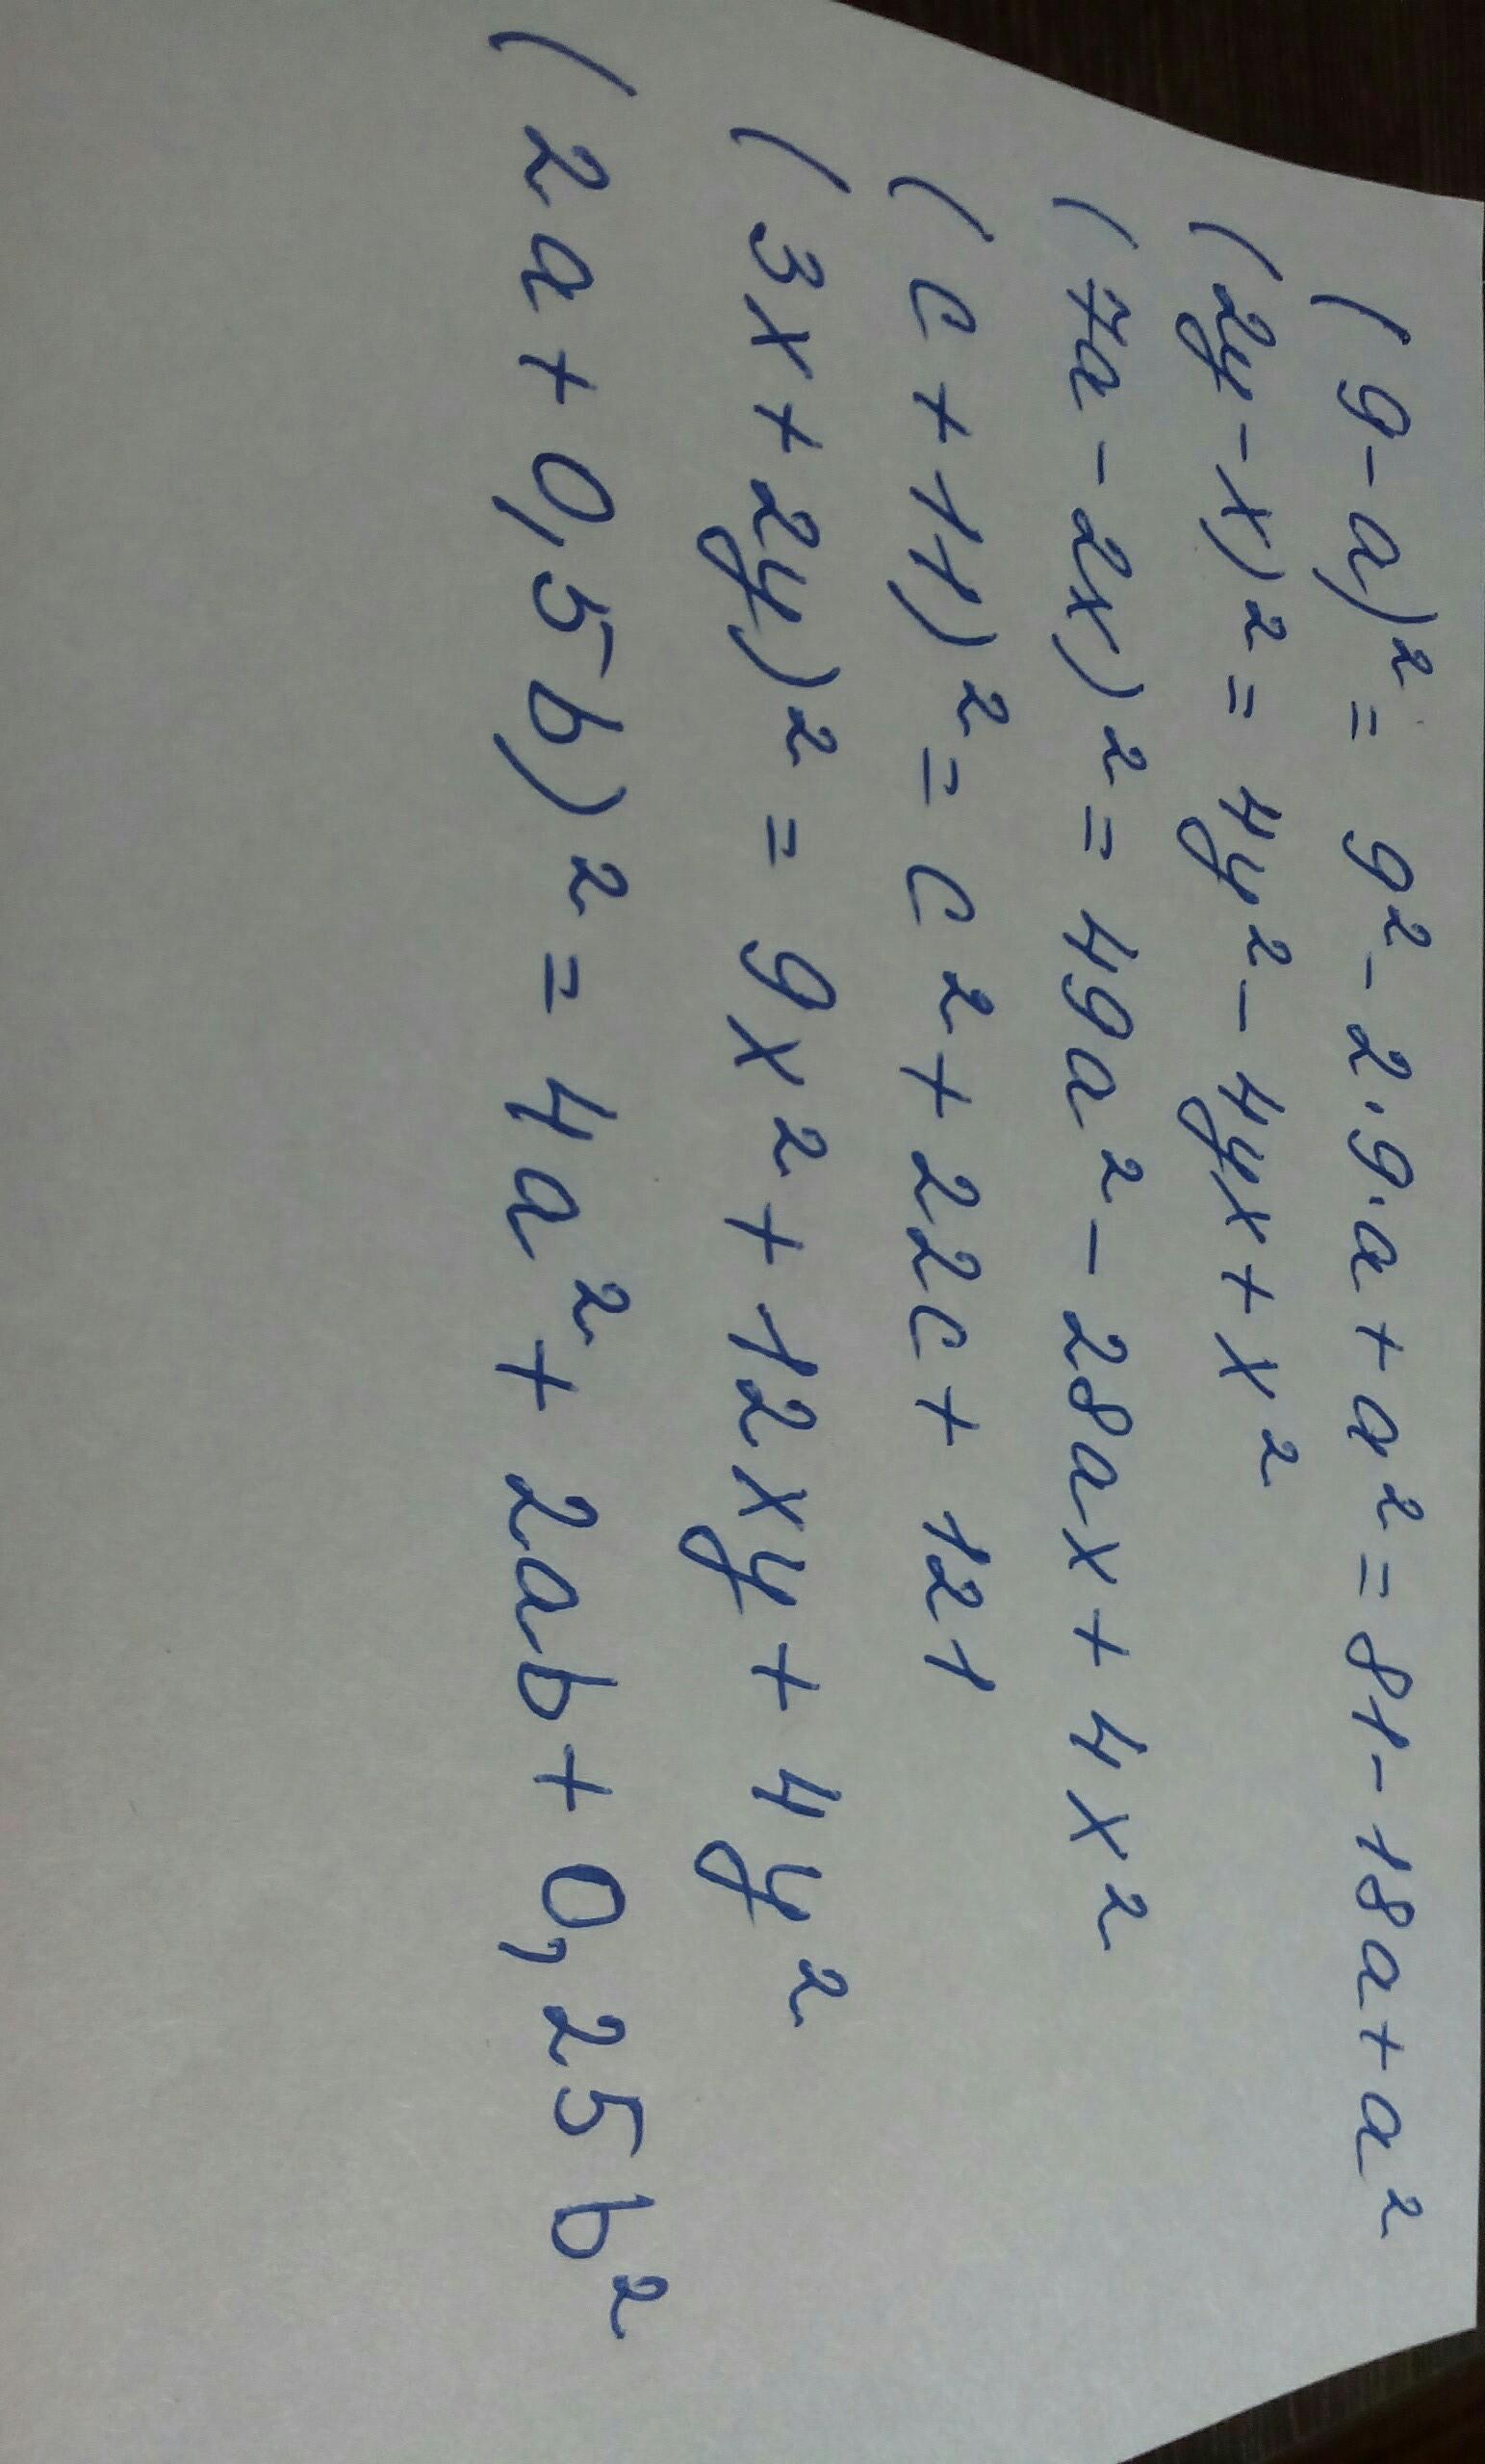 (9-a)² = 9² - 2·9·a + a² = 81 - 18a + a²
(2y - x)² = 4y² - 4yx + x²
(7a - 2x)² = 49a² - 28ax + 4x²
(c + 11)² = c² + 22c + 121
(3x + 2y)² = 9x² + 12xy + 4y²
(2a + 0,5b)² = 4a² + 2ab + 0,25b²